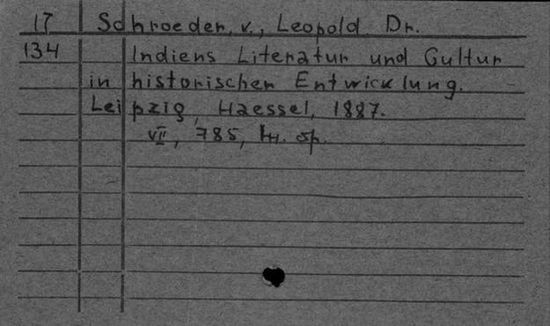 17 Schroeder, v., Leopold Dr.
134 Indiens Literatur und Cultur
in historischer Entwicklung.
Leipzig, Haessel, 1887.
VII, 785, kl. sp.